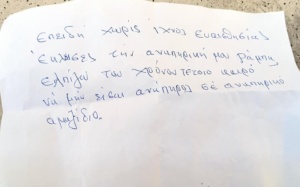 Επειδή χωρίς ίχνος Ευαισθησίας
Έκλεισες την αναπηρική μου ράμπα
Ελπίζω του χρόνου τέτοιο καιρό
να μην είσαι ανάπηρος σέ αναπηρικό
αμαξίδιο.